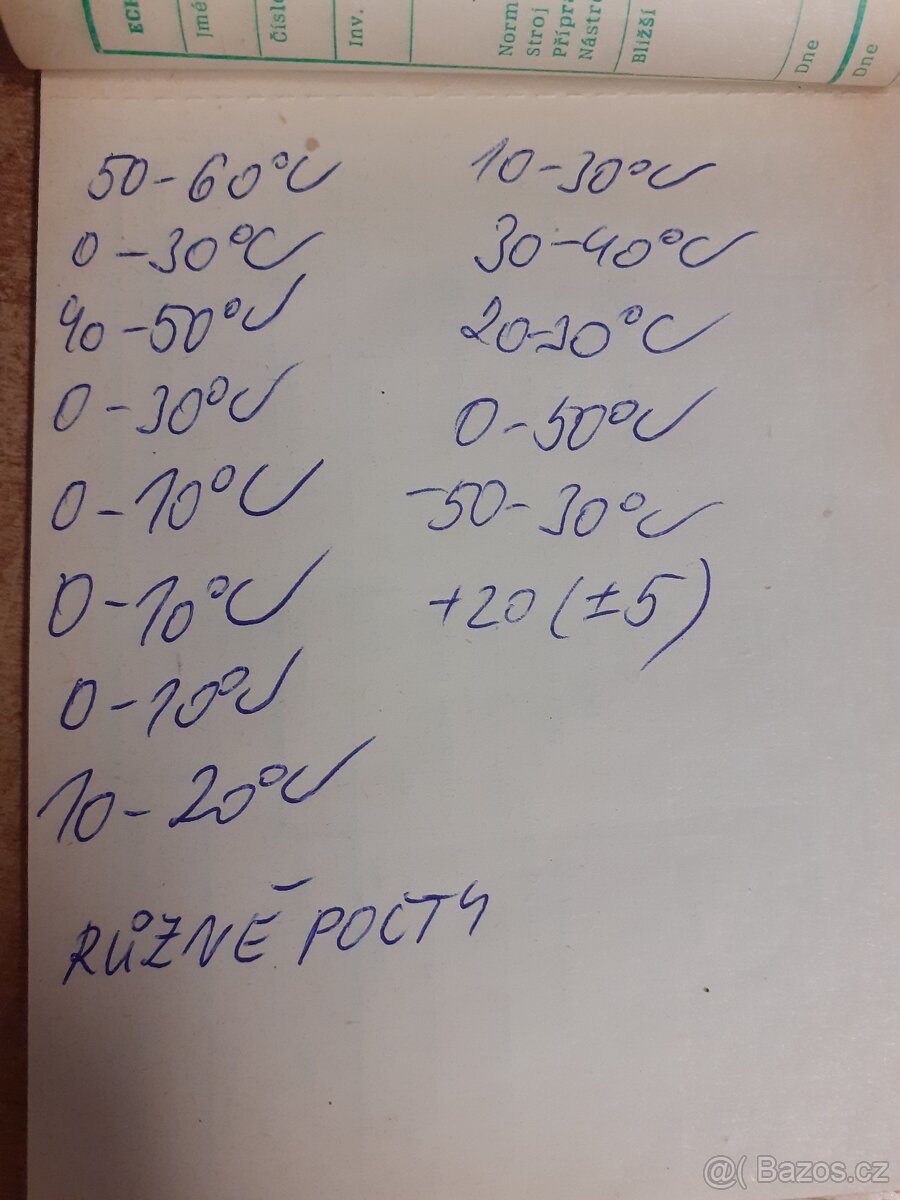 ECH
Jmé
Čísl
Inv.
Norm
Stroj
Přípra
Nástro
Bližší
Dne
Dne
50-60°C
0-30°C
40-50°C
0-30°C
0-10°C
0-10°C
0-10°C
10-20°C
RŮZNÉ POČTY
10-30°C
30-40°C
20-30°C
0-50°C
-50-30°C
+20(±5)
@( Bazos.cz